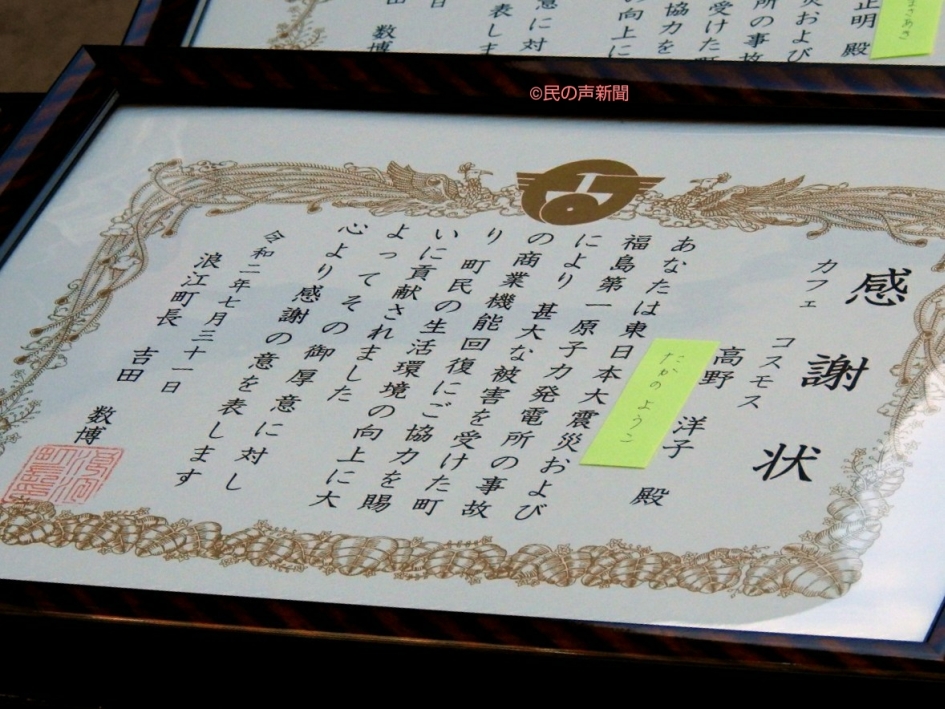 ©民の声新聞
正明 殿
まさあき
および
所の事故
受けた町
協力を
の向上に
に対
表しま
日
数博
感謝状
カフェ コスモス
高野 洋子 殿
たかの ようこ
あなたは東日本大震災および
福島第一原子力発電所の事故
により 甚大な被害を受けた町
の商業機能回復にご協力を賜
り 町民の生活環境の向上に大
いに貢献されました
よってその御厚意に対し
心より感謝の意を表します
令和二年七月三十一日
浪江町長 吉田 数博